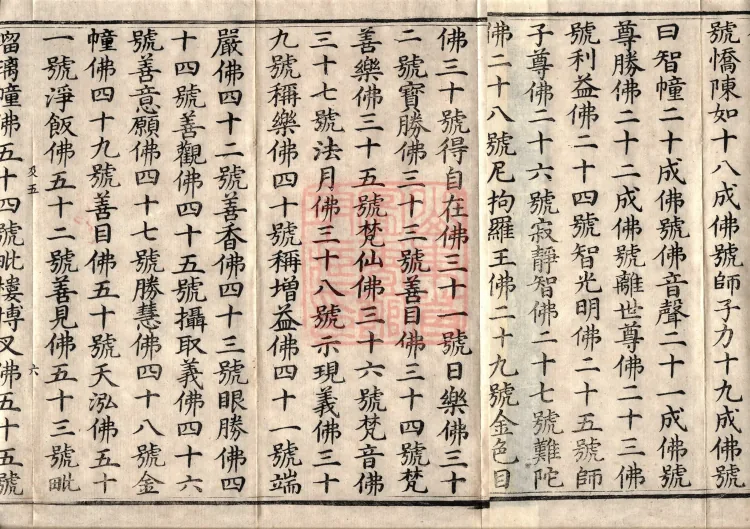 號憍陳如十八成佛號師子力十九成佛號
曰智幢二十成佛號佛音聲二十一成佛號
尊勝佛二十二成佛號離世尊佛二十三佛
號利益佛二十四號智光明佛二十五號師
子尊佛二十六號寂靜智佛二十七號難陀
佛二十八號尼拘羅王佛二十九號金色目
佛三十號得自在佛三十一號日樂佛三十
二號寶勝佛三十三號善目佛三十四號梵
善樂佛三十五號梵仙佛三十六號梵音佛
三十七號法月佛三十八號示現義佛三十
九號稱樂佛四十號稱增益佛四十一號端
嚴佛四十二號善香佛四十三號眼勝佛四
十四號善觀佛四十五號攝取義佛四十六
號善意願佛四十七號勝慧佛四十八號金
幢佛四十九號善目佛五十號天泓佛五十
一號淨飯佛五十二號善見佛五十三號毗
六
瑠璃幢佛五十四號毗樓博叉佛五十五號